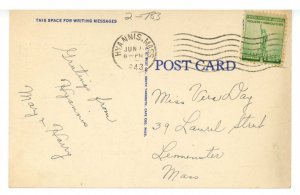 2-753
THIS SPACE FOR WRITING MESSAGES
HYANNIS, MASS.
JUN
6-PM
1943
POST CARD
Greetings from
Hyannis
Mary & Harry
Miss Vera Day
39 Laurel Street
Leominster
Mass